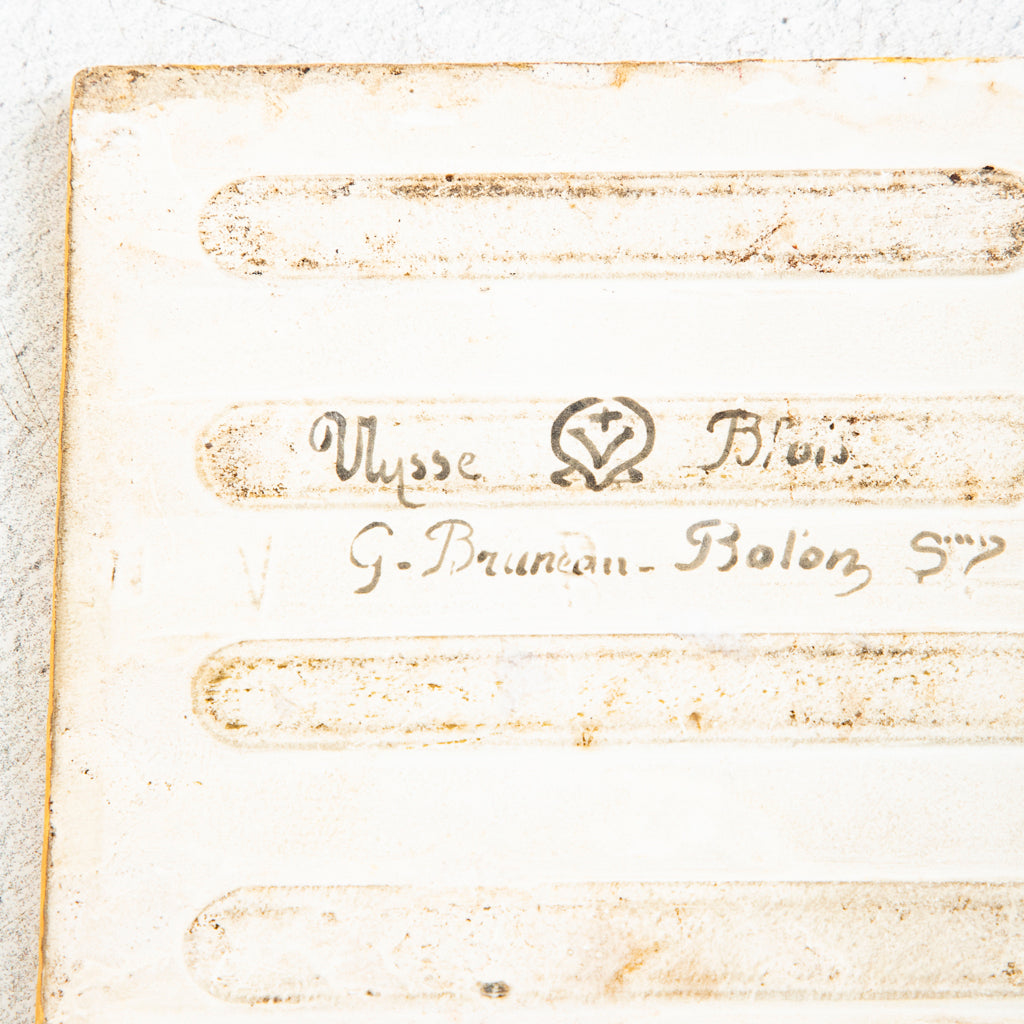 Ulysse Blois
G. Bruneau - Bolon